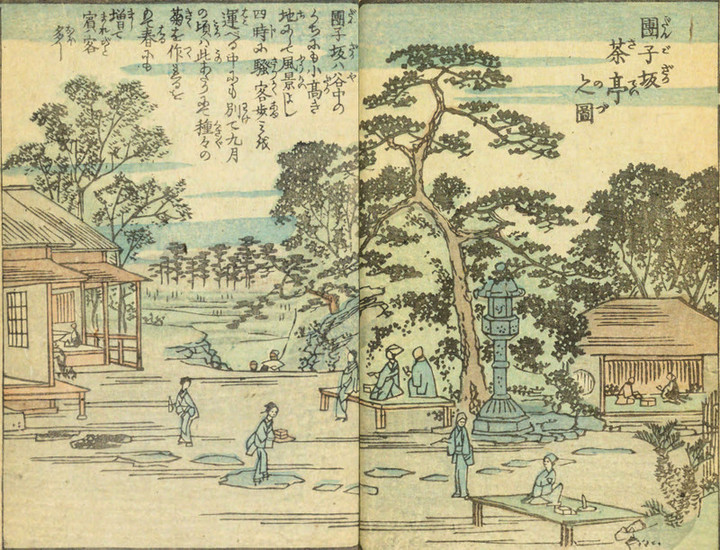 團子坂
茶亭
之圖
團子坂ハ谷中の
うちにも小高き
地にて風景よし
四時に騒客歩ミを
運べる中にも別て九月
の頃ハ此あたりにて種々の
菊を作る
春にも
増て
賓客
多し